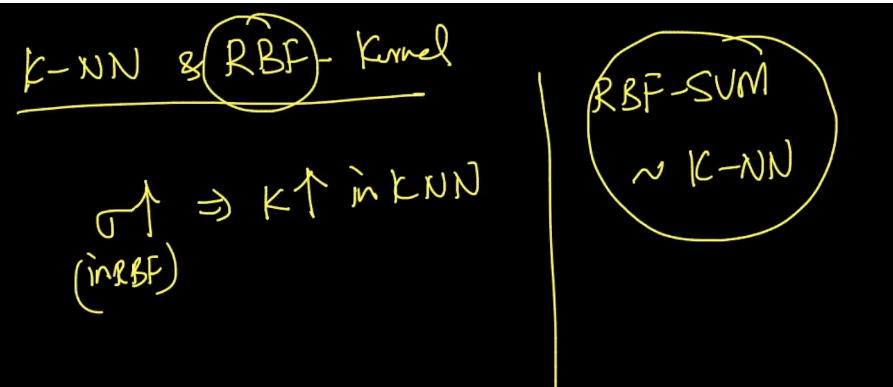 K-NN & RBF- Kernel
σ↑ ⇒ K↑ in KNN
(in RBF)
RBF-SVM
~ K-NN